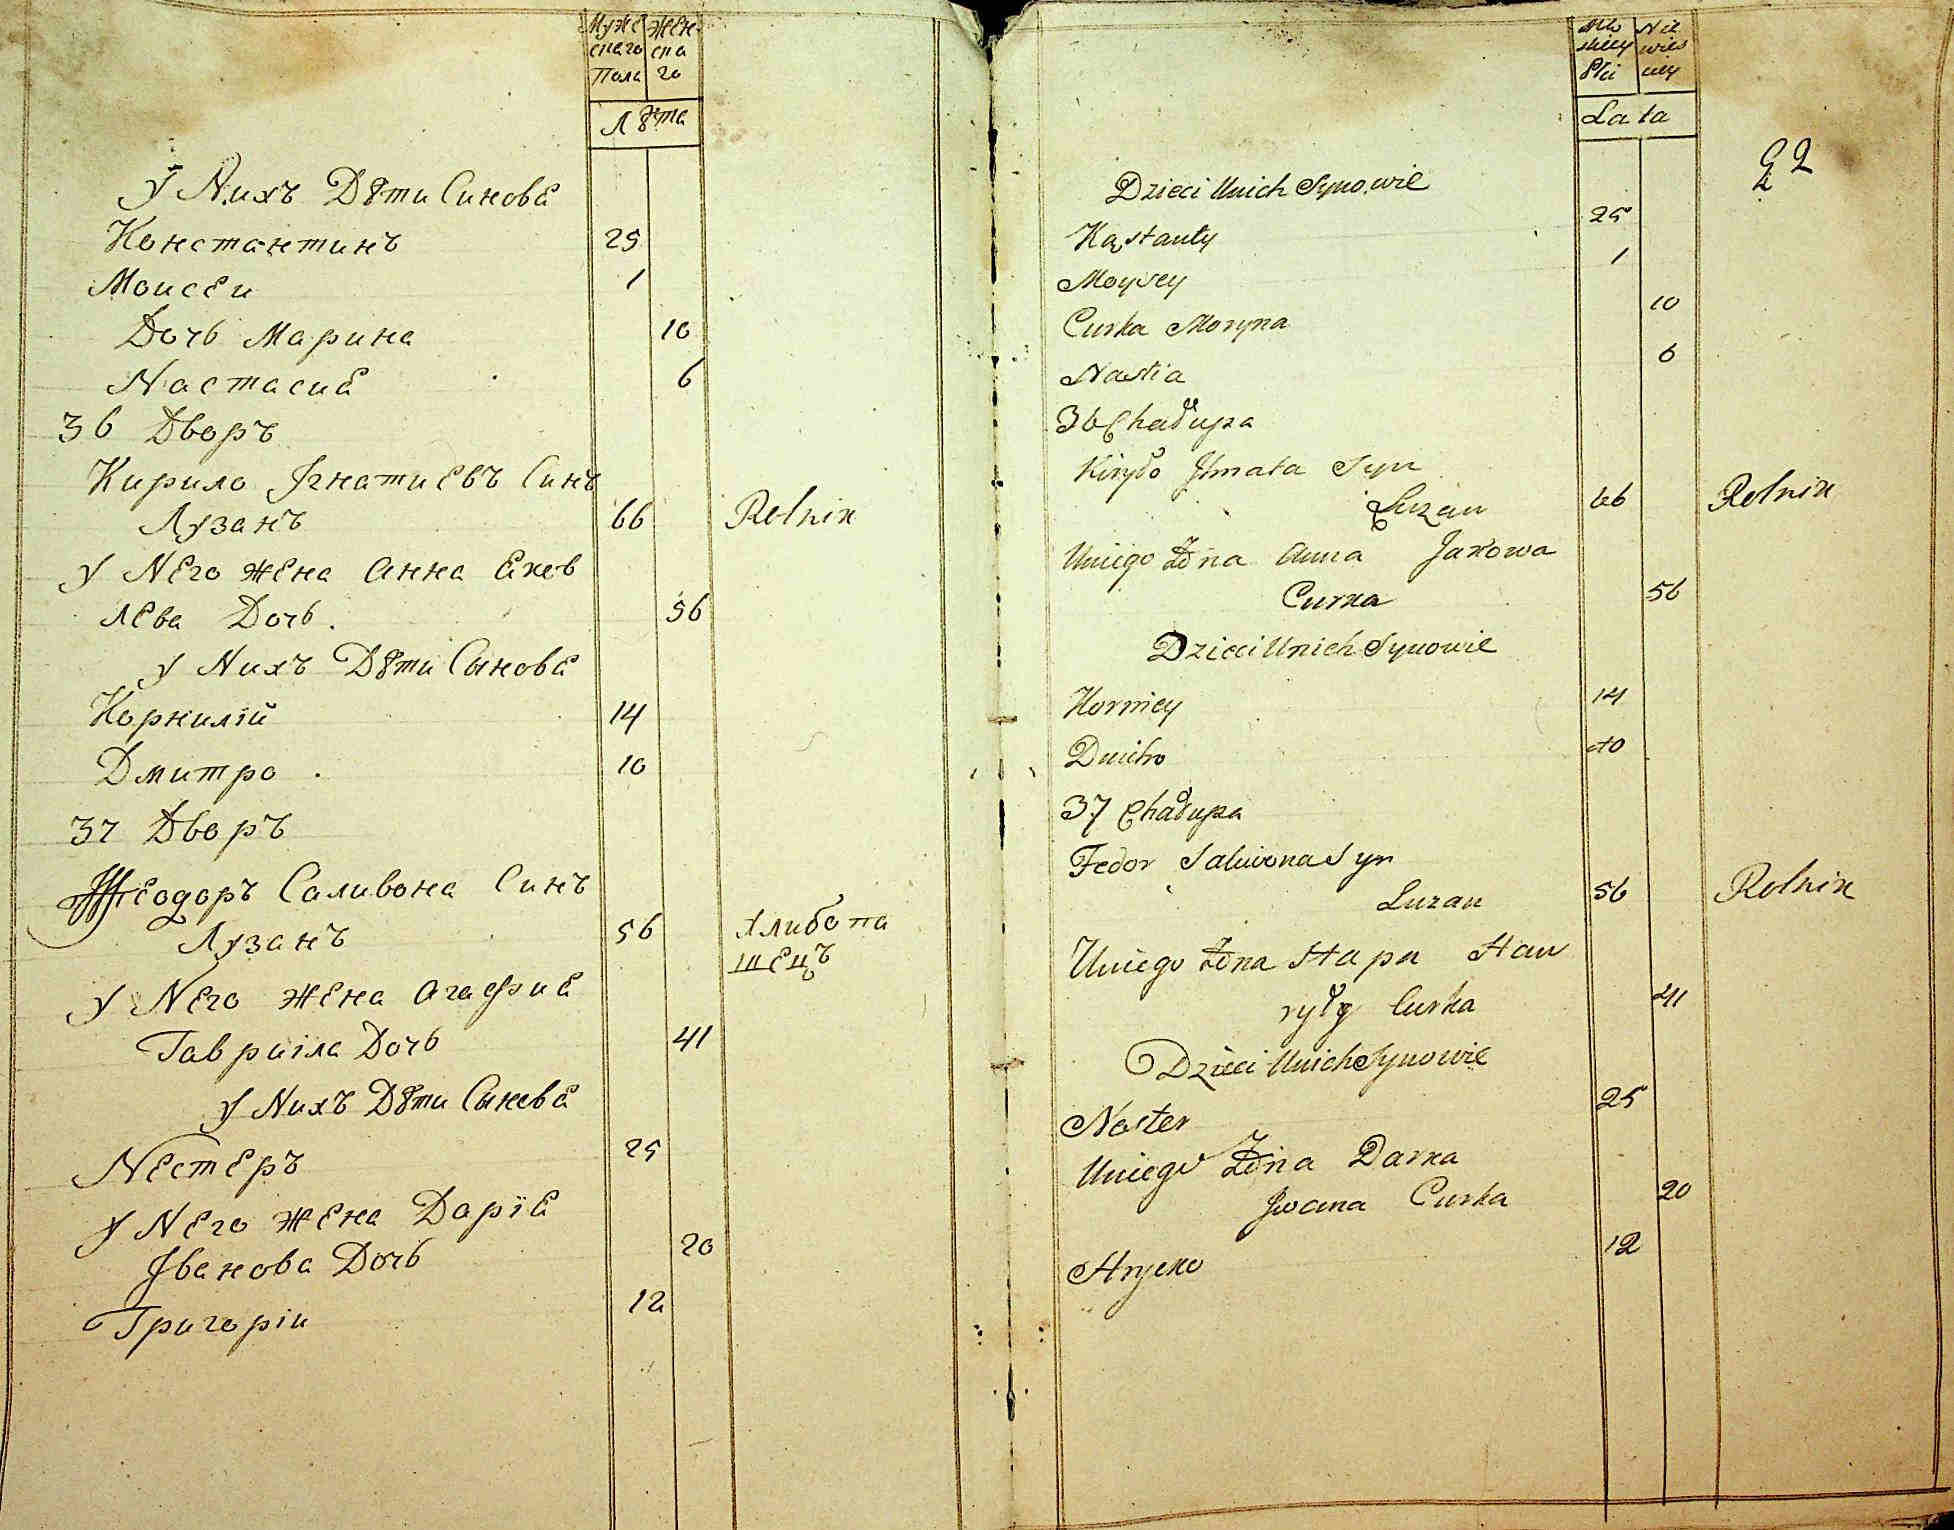 Муже Жен
скаго ска
Пола го
Лѣта
У Нихъ Дѣти Синове
Константинъ 25
Моисеи 1
Дочь Марина 10
Настасиѣ 6
36 Дворъ
Кирило Ігнатиевъ Синъ
Лузанъ 66 Rolnik
У Него жена Анна Еков
лева Дочь. 56
у Нихъ Дѣти Сынове
Корнилій 14
Дмитро. 10
37 Дворъ
Ѳеодоръ Саливона Синъ
Лузанъ 56 Хлибопа
шецъ
У Него жена Агафия
Гавриіла Дочь 41
у Нихъ Дѣти Сынове
Нестеръ 25
У Него жена Даріѣ
Іванова Дочь 20
Григоріи 12
Mę Nie
skiey wies
Płci ciey
Lata
22
Dzieci Unich Synowie
Kąstanty 25
Moysey 1
Curka Moryna 10
Nastia 6
36 Chałupa
Kiryło Ihnata Syn
Luzan 66 Rolnik
Uniego Żona Anna Jakowa
Curka 56
Dzieci Unich Synowie
Korniey 14
Dmitro 10
37 Chałupa
Fedor Saliwona Syn
Luzan 56 Rolnik
Uniego Żona Hapa Haw
ryły Curka 41
Dzieci Unich Synowie
Nester 25
Uniego Żona Darka
Jwana Curka 20
Hrycko 12